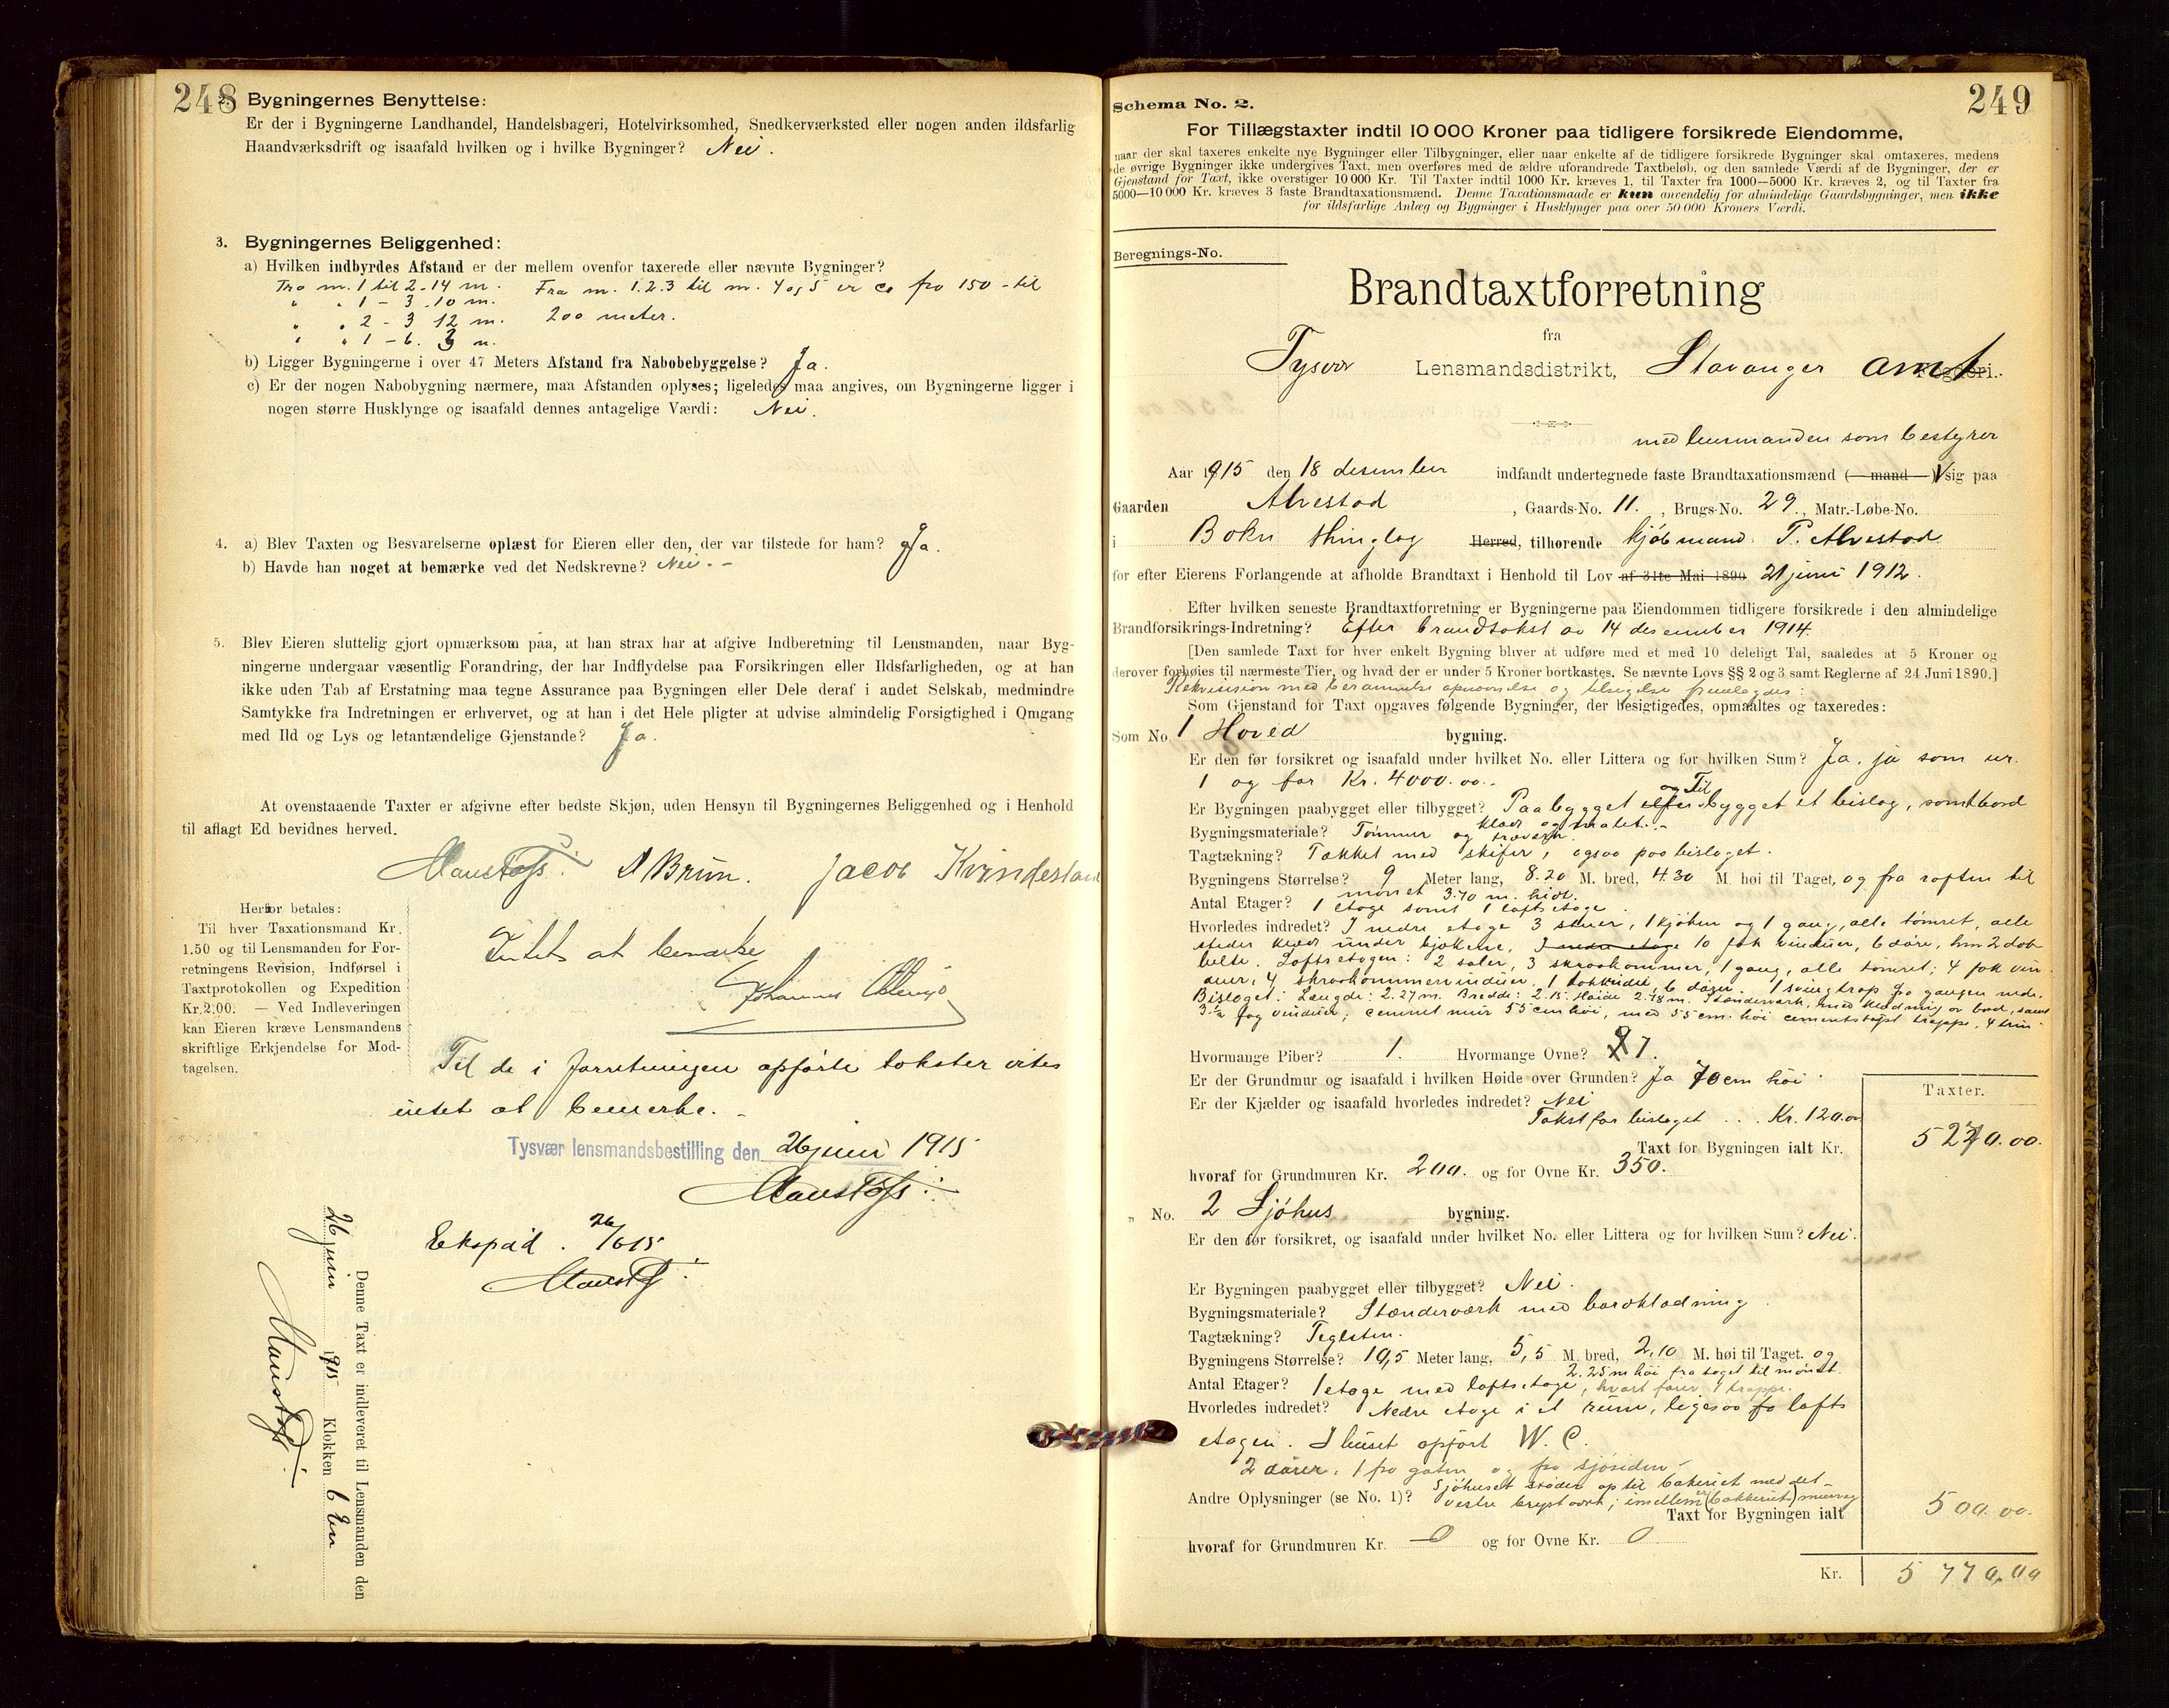 248
2. Bygningernes Benyttelse:
Er der i Bygningerne Landhandel, Handelsbageri, Hotelvirksomhed, Snedkerværksted eller nogen anden ildsfarlig
Haandværksdrift og isaafald hvilken og i hvilke Bygninger? Nei.
3. Bygningernes Beliggenhed:
a) Hvilken indbyrdes Afstand er der mellem ovenfor taxerede eller nævnte Bygninger?
Fra nr. 1 til 2 - 14 m. Fra nr. 1.2.3 til nr. 4 og 5 er ca fra 150 - til
" " 1 - 3 10 m.
" " 2 - 3 12 m. 200 meter.
" " 1 - 6. 3 m.
b) Ligger Bygningerne i over 47 Meters Afstand fra Nabobebyggelse? Ja.
c) Er der nogen Nabobygning nærmere, maa Afstanden oplyses; ligeledes maa angives, om Bygningerne ligger i
nogen større Husklynge og isaafald dennes antagelige Værdi: Nei.
4. a) Blev Taxten og Besvarelserne oplæst for Eieren eller den, der var tilstede for ham? Ja.
b) Havde han noget at bemærke ved det Nedskrevne? Nei. -
5. Blev Eieren sluttelig gjort opmærksom paa, at han strax har at afgive Indberetning til Lensmanden, naar Byg-
ningerne undergaar væsentlig Forandring, der har Indflydelse paa Forsikringen eller Ildsfarligheden, og at han
ikke uden Tab af Erstatning maa tegne Assurance paa Bygningen eller Dele deraf i andet Selskab, medmindre
Samtykke fra Indretningen er erhvervet, og at han i det Hele pligter at udvise almindelig Forsigtighed i Omgang
med Ild og Lys og letantændelige Gjenstande? Ja.
At ovenstaaende Taxter er afgivne efter bedste Skjøn, uden Hensyn til Bygningernes Beliggenhed og i Henhold
til aflagt Ed bevidnes herved.
Brun. Jacob Kvindesland
Herfor betales:
Til hver Taxationsmand Kr.
1.50 og til Lensmanden for For-
retningens Revision, Indførsel i
Taxtprotokollen og Expedition
Kr. 2.00. — Ved Indleveringen
kan Eieren kræve Lensmandens
skriftlige Erkjendelse for Mod-
tagelsen.
Intet at bemærke
Johannes
Til de i forretningen opførte takster vites
intet at bemerke. -
Tysvær lensmandsbestilling den 26 juni 1915
Ekspèd. 26/6 15
Denne Taxt er indleveret til Lensmanden den
26 juni 1915 Klokken 6 Em
249
Schema No. 2.
For Tillægstaxter indtil 10 000 Kroner paa tidligere forsikrede Eiendomme,
naar der skal taxeres enkelte nye Bygninger eller Tilbygninger, eller naar enkelte af de tidligere forsikrede Bygninger skal omtaxeres, medens
de øvrige Bygninger ikke undergives Taxt, men overføres med de ældre uforandrede Taxtbeløb, og den samlede Værdi af de Bygninger, der er
Gjenstand for Taxt, ikke overstiger 10 000 Kr. Til Taxter indtil 1000 Kr. kræves 1, til Taxter fra 1000—5000 Kr. kræves 2, og til Taxter fra
5000—10 000 Kr. kræves 3 faste Brandtaxationsmænd. Denne Taxationsmaade er kun anvendelig for almindelige Gaardsbygninger, men ikke
for ildsfarlige Anlæg og Bygninger i Husklynger paa over 50 000 Kroners Værdi.
Beregnings-No.
Brandtaxtforretning
fra
Tysvær Lensmandsdistrikt, Stavanger amt Fogderi.
med lensmanden som bestyrer
Aar 1915 den 18 desember indfandt undertegnede faste Brandtaxationsmænd (— mand —) sig paa
Gaarden Alvestad, Gaards-No. 11., Brugs-No. 29., Matr.-Løbe-No.
i Bokn thinglag Herred, tilhørende kjøbmand P. Alvestad
for efter Eierens Forlangende at afholde Brandtaxt i Henhold til Lov af 31te Mai 1890 21 juni 1912.
Efter hvilken seneste Brandtaxtforretning er Bygningerne paa Eiendommen tidligere forsikrede i den almindelige
Brandforsikrings-Indretning? Efter brandtakst av 14 desember 1914.
[Den samlede Taxt for hver enkelt Bygning bliver at udføre med et med 10 deleligt Tal, saaledes at 5 Kroner og
derover forhøies til nærmeste Tier, og hvad der er under 5 Kroner bortkastes. Se nævnte Lovs §§ 2 og 3 samt Reglerne af 24 Juni 1890.]
Rekvisision med berammelse opnævnelse og tilsigelse fremlagdes:
Som Gjenstand for Taxt opgaves følgende Bygninger, der besigtigedes, opmaaltes og taxeredes:
Som No. 1 Hoved bygning.
Er den før forsikret og isaafald under hvilket No. eller Littera og for hvilken Sum? Ja, ja som nr.
1 og for Kr. 4000.00.-
Er Bygningen paabygget eller tilbygget? Paabygget eller og Til bygget et bislag, samt bord
klædt og malet. -
Bygningsmateriale? Tømmer og traverk.
Tagtækning? Takket med skifer, ogsaa paa bislaget.
Bygningens Størrelse? 9 Meter lang, 8.20 M. bred, 4.30 M. høi til Taget, og fra raften til
mønet 3.70 m. høit.
Antal Etager? 1 etage samt 1 loftsetage.
Hvorledes indredet? I nedre etage 3 stuer, 1 kjøken og 1 gang, alle tømret, alle
steder klædt under bjelkene, I nedre etage 10 fak vinduer, 6 døre, hvor 2 dob
belte. Loftsetagen: 2 saler, 3 skraakammer, 1 gang, alle tømret; 4 fak vin-
duer, 4 skraakammervinduer, 6 døre. 1 svingtrap fra gangen nede.
Bislaget: Længde: 2.27 m. Bredde: 2.15. Høide 2.78 m. Stænderverk, med klædning av bord, samt
fag vinduer, cement mur 55 cm høi, med 55 cm. høi cementstøpt trappe, 4 trin.
Hvormange Piber? 1. Hvormange Ovne? 7.
Er der Grundmur og isaafald i hvilken Høide over Grunden? Ja 70 cm høi.
Er der Kjælder og isaafald hvorledes indredet? Nei
Takst for bislaget . . . Kr. 120.00
Taxter.
Taxt for Bygningen ialt Kr. 5270.00.
hvoraf for Grundmuren Kr. 200. og for Ovne Kr. 350.
„ No. 2 Sjøhus bygning.
Er den før forsikret, og isaafald under hvilket No. eller Littera og for hvilken Sum? Nei.
Er Bygningen paabygget eller tilbygget? Nei.
Bygningsmateriale? Stænderværk med bordklædning.
Tagtækning? Teglsten.
Bygningens Størrelse? 10,5 Meter lang, 5,5 M. bred, 2,10 M. høi til Taget. og
2.25 m høi fra taget til mønet.
Antal Etager? 1 etage med loftsetage, hvort fører 1 trappe.
Hvorledes indredet? Nedre etage i et rum, ligesaa lofts
etagen. I huset opført W. C.
2 dører, 1 fra gaten og fra sjøsiden
Andre Oplysninger (se No. 1)? Sjøhuset støder op til bakeriet med det
vestre imellem er (bakkeriets) murvæg
Taxt for Bygningen ialt 500.00.
hvoraf for Grundmuren Kr. 0 og for Ovne Kr. 0
Kr. 5 770,00